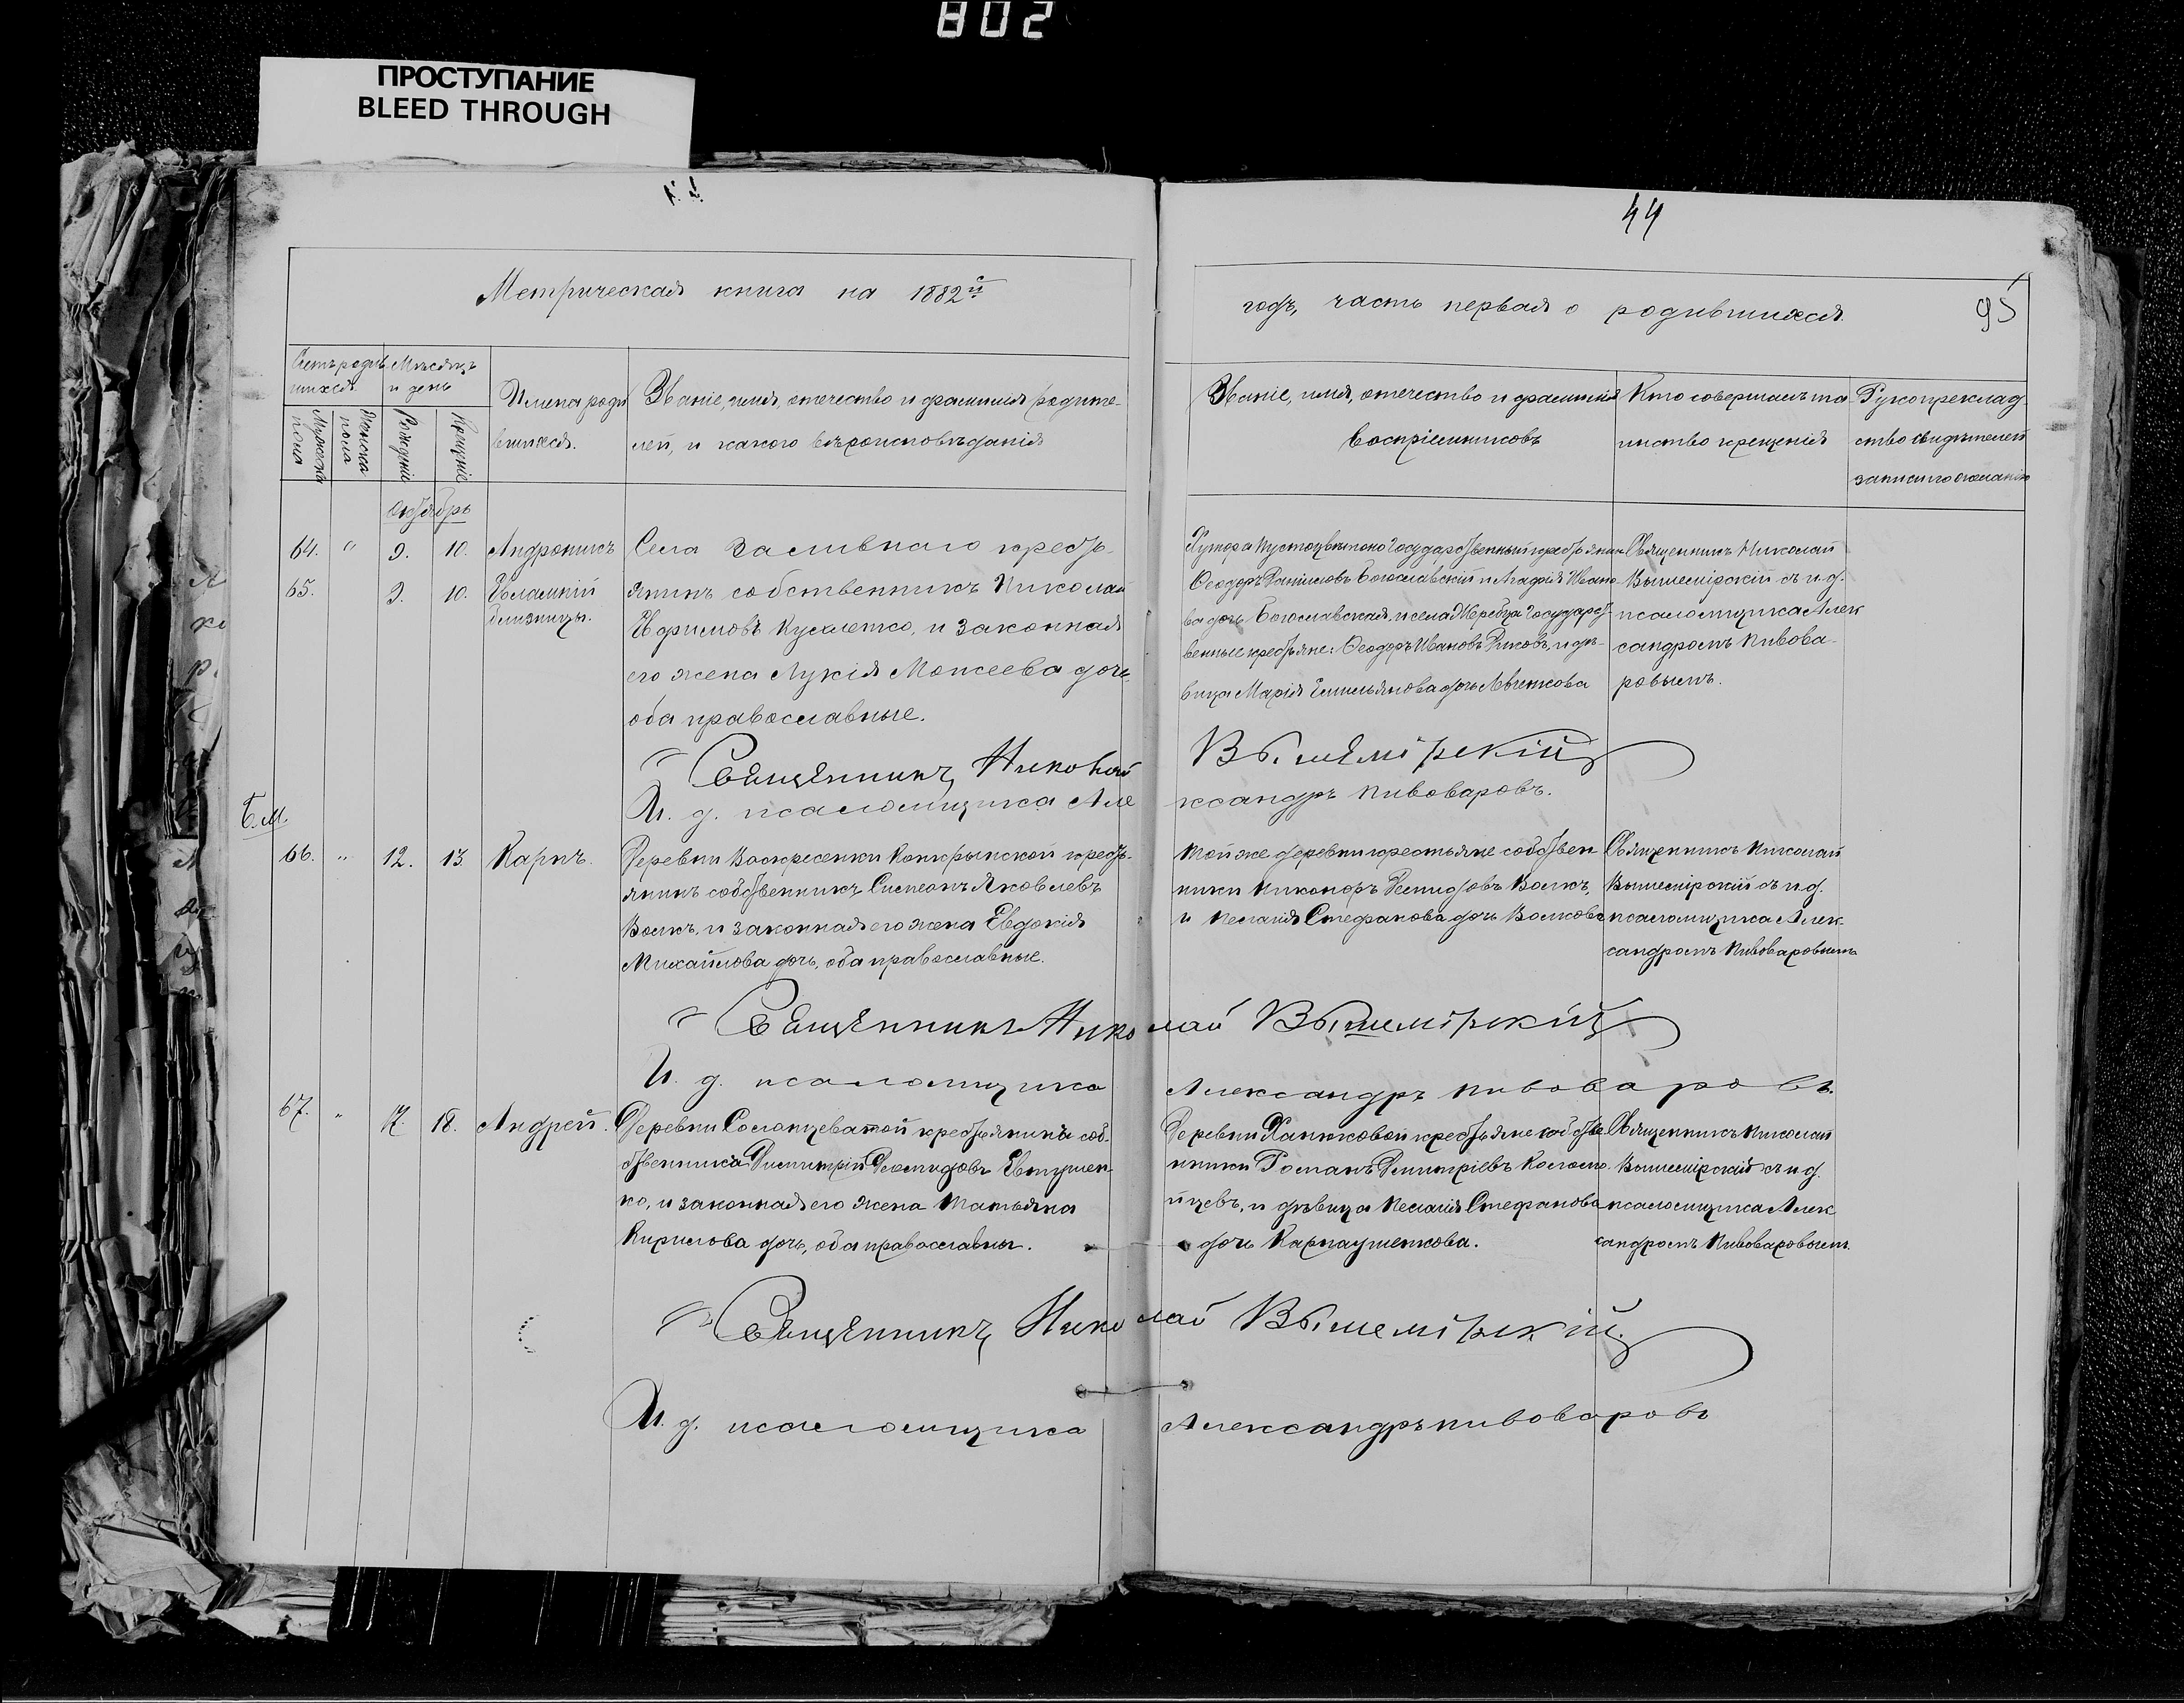 802
ПРОСТУПАНИЕ
BLEED THROUGH
44
Метрическая книга на 1882й
годъ, часть первая о родившихся.
95
Счетъ родив
шихся.
Мѣсяцъ
и день
Мужеска
пола
Женска
пола
Рожденіе
Крещеніе
Имена роди
вшихся.
Званіе, имя, отечество и фамилия родите-
лей, и какого вѣроисповѣданія
Званіе, имя, отечество и фамилія
воспріемниковъ
Кто совершалъ та
инство крещенія
Рукоприклад
ство свидѣтелей
записи по желанію
Октябрь
64. " 9. 10. Андроникъ
65. 9. 10. Евлампій
близнецы.
Села Заливнаго кресть-
янинъ собственникъ Николай
Ефимовъ и законная
его жена Лукія Моисеева дочь,
оба православные.
Хутора Государственный крестьянинъ
Феодоръ Даніиловъ Богославскій и Агафія Ивано
ва дочь Богославская, и села Жеребца Государст
венные крестьяне: Феодоръ Ивановъ и дѣ-
вица Марія Емельянова дочь
Священникъ Николай
Вышемірскій съ и. д.
псаломщика Алек
сандромъ Пивова-
ровымъ.
Священникъ Николай Вышемірскій
И. д. псаломщика Александръ Пивоваровъ.
Б.М.
66. " 12. 13 Карпъ.
Деревни Воскресенки крест-
янинъ собственникъ Симеонъ Яковлевъ
Волкъ, и законная его жена Евдокія
Михайлова дочь, оба православные.
Той же деревни крестьяне собствен
ники Никаноръ Демидовъ Волкъ,
и Пелагія Стефанова дочь Волкова
Священникъ Николай
Вышемірскій съ и. д.
псаломщика Алек-
сандромъ Пивоваровымъ
Священникъ Николай Вышемірскій
И. д. псаломщика Александръ Пивоваровъ.
67. " 17. 18. Андрей.
Деревни Солонцеватой крестьянина соб-
ственника Димитрій Евтушен-
ко, и законная его жена Татьяна
Кирилова дочь, оба православны.
Деревни Ханжковой крестьяне собстве
нники Романъ Димитріевъ Коломо
йцевъ, и дѣвица Пелагія Стефанова
дочь Карпаушенкова.
Священникъ Николай
Вышемірскій съ и. д.
псаломщика Алек
сандромъ Пивоваровымъ.
Священникъ Николай Вышемірскій.
И. д. псаломщика Александръ Пивоваровъ